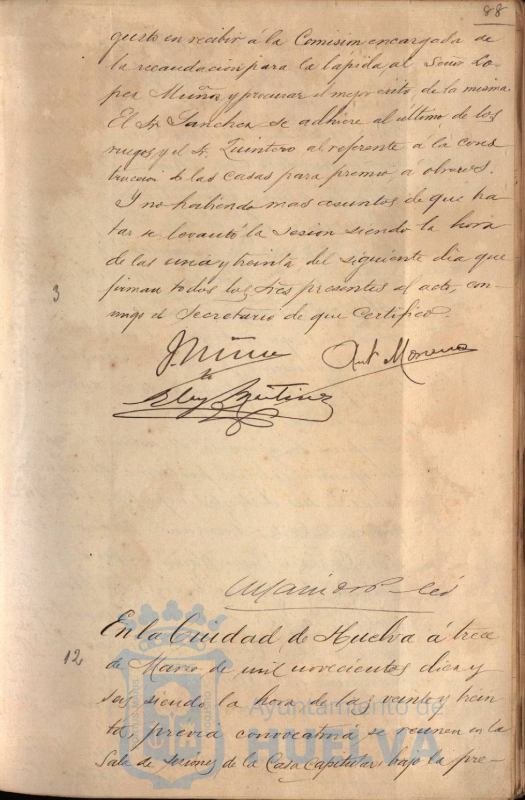 88
gusto en recibir á la Comision encargada de
la recaudacion para la lápida al Señor Lo-
pez Muñoz y procurar el mejor éxito de la misma
El Sr. Sanchez se adhiere al último de los
ruegos y el Sr. Quintero al referente á la cons
truccion de las casas para premio á obreros.
Y no habiendo mas asuntos de que tra
tar se levantó la sesion siendo la hora
de las una y treinta del siguiente dia que
firman todos los Sres presentes al acto, con-
migo el Secretario de que certifico.
3
Ant Moreno
En la Ciudad de Huelva á trece
12
de Marzo de mil novecientos diez y
seis siendo la hora de las veinte y trein
ta, previa convocatoria se reunen en la
Sala de Sesiones de la Casa Capitular bajo la pre-
Ayuntamiento de
HUELVA